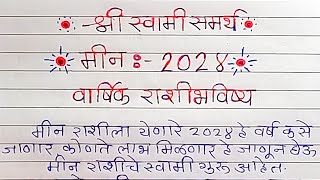 -श्री स्वामी समर्थ
मीन :- 2024
वार्षिक राशीभविष्य
मीन राशीला येणारे 2024 हे वर्ष कसे
जाणार कोणते लाभ मिळणार हे जाणून घेऊ
मीन राशीचे स्वामी गुरू आहेत.